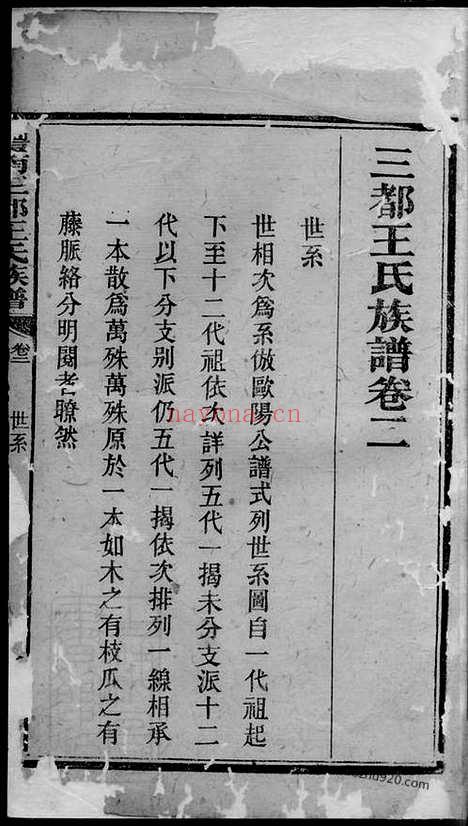 三都王氏族譜卷二
世系
世相次爲系倣歐陽公譜式列世系圖自一代祖起
下至十二代祖依次詳列五代一揭未分支派十二
代以下分支别派仍五代一揭依次排列一線相承
一本散爲萬殊萬殊原於一本如木之有枝瓜之有
藤脈絡分明閱者瞭然
南三都王氏族譜
卷二
世系
nayona.cn